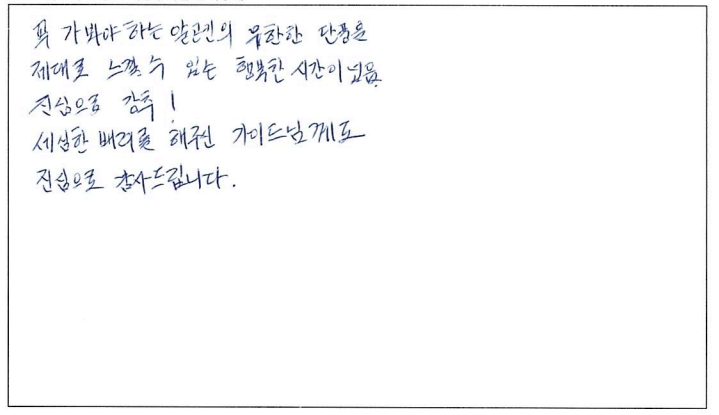 꼭 가봐야 하는 알곤퀸의 무한한 단풍을
제대로 느낄 수 있는 행복한 시간이었음.
진심으로 강추!
세심한 배려를 해주신 가이드님께도
진심으로 감사드립니다.